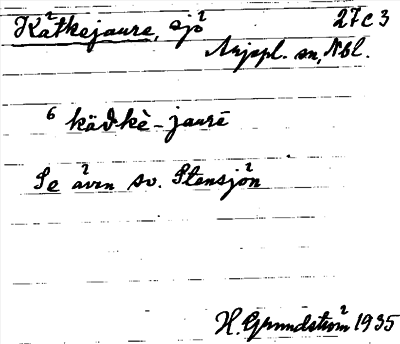 Kätkejaure, sjö 27c3
Arjepl. sn, Nbl.
6 käϑkè-jaurē
Se även sv. Stensjön
H. Grundström 1935